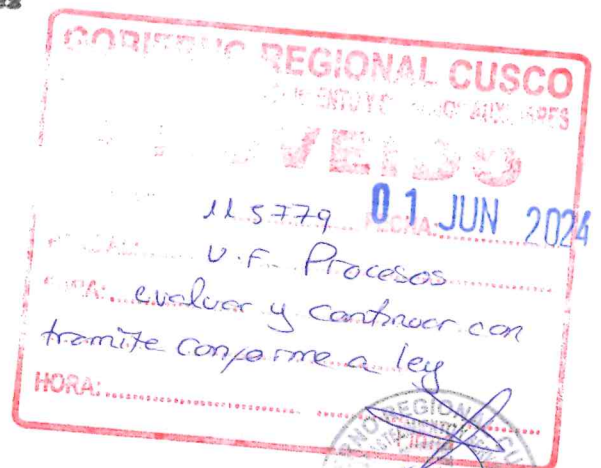 GOBIERNO REGIONAL CUSCO
PROVEIDO
115779 FECHA: 01 JUN 2024
U.F. Procesos
PARA: evaluar y continuar con
tramite conforme a ley
HORA: